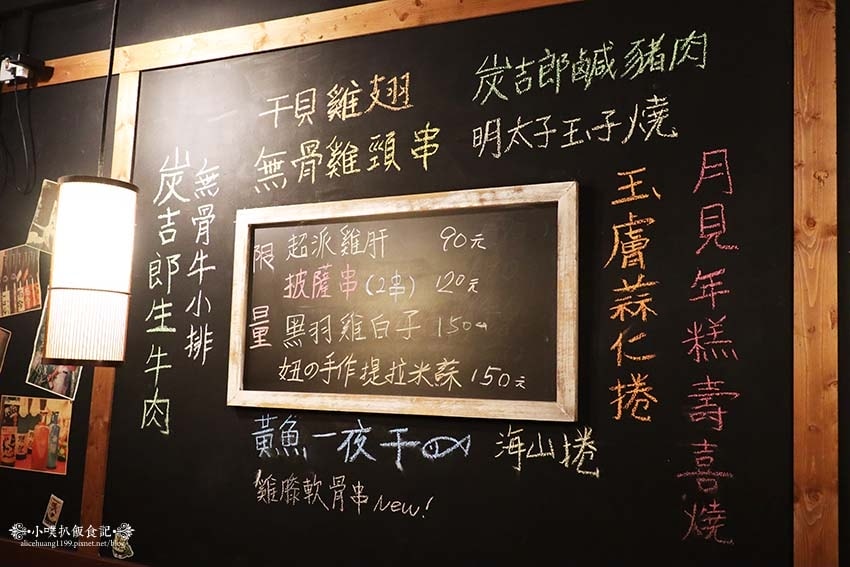 炭吉郎鹹豬肉
干貝雞翅
明太子玉子燒
無骨雞頸串
月見年糕壽喜燒
玉膚蒜仁捲
無骨牛小排
炭吉郎生牛肉
限量
超派雞肝 90元
披薩串(2串) 120元
黑羽雞白子 150元
妞の手作提拉米蘇 150元
黃魚一夜干
海山捲
雞膝軟骨串 New!
小噗扒飯食記
alicehuang1199.pixnet.net/blog